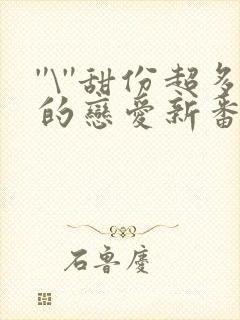 "\"甜份超多
的戀愛新番
石魯慶